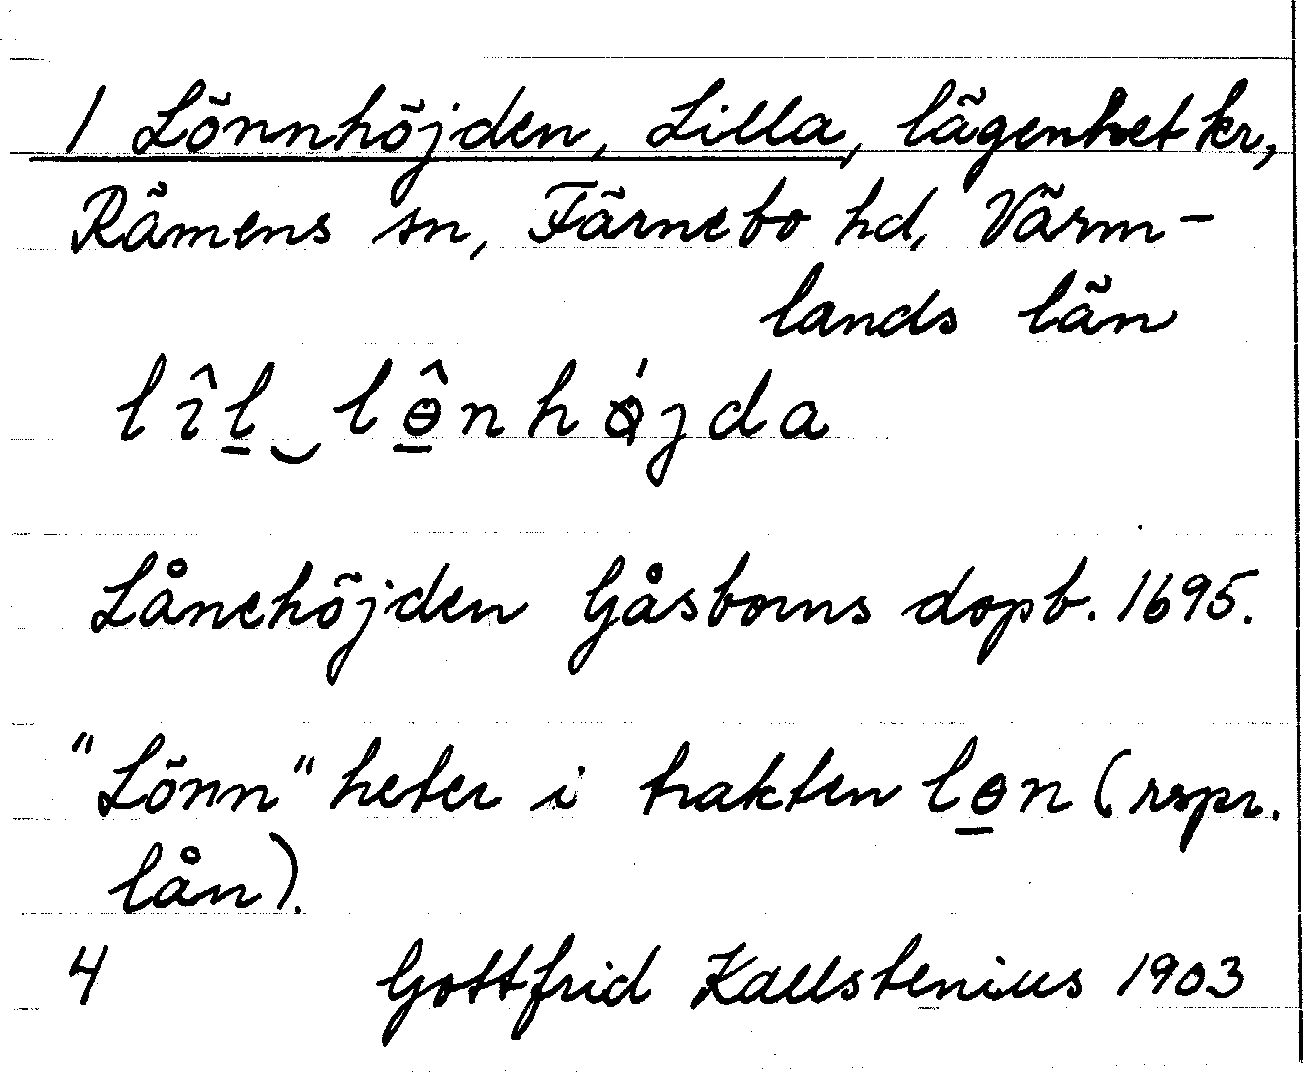 1 Lönnhöjden, Lilla, lägenhet kr,
Rämens sn, Färnebo hd, Värm-
lands län
lîl̲‿lɵ̲̂nhǿjda
Lånehöjden Gåsborns dopb. 1695.
"Lönn" heter i trakten lɵ̲n (rspr.
lån).
4 Gottfrid Kallstenius 1903